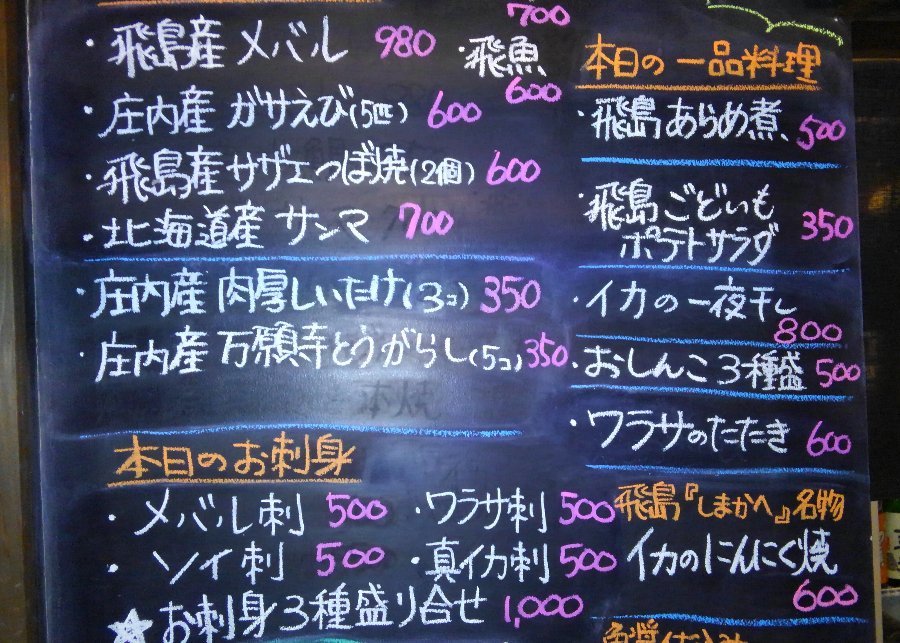 700
・飛島産 メバル 980
・飛魚 600
・庄内産 ガサえび(5匹) 600
・飛島産 サザエつぼ焼(2個) 600
・北海道産 サンマ 700
・庄内産 肉厚しいたけ(3コ) 350
・庄内産 万願寺とうがらし(5コ) 350
本日のお刺身
・メバル刺 500
・ワラサ刺 500
・ソイ刺 500
・真イカ刺 500
☆お刺身3種盛り合せ 1,000
本日の一品料理
・飛島あらめ煮 500
・飛島ごどいも
ポテトサラダ 350
・イカの一夜干し
800
・おしんこ3種盛 500
・ワラサのたたき 600
飛島『しまかへ』名物
イカのにんにく焼
600